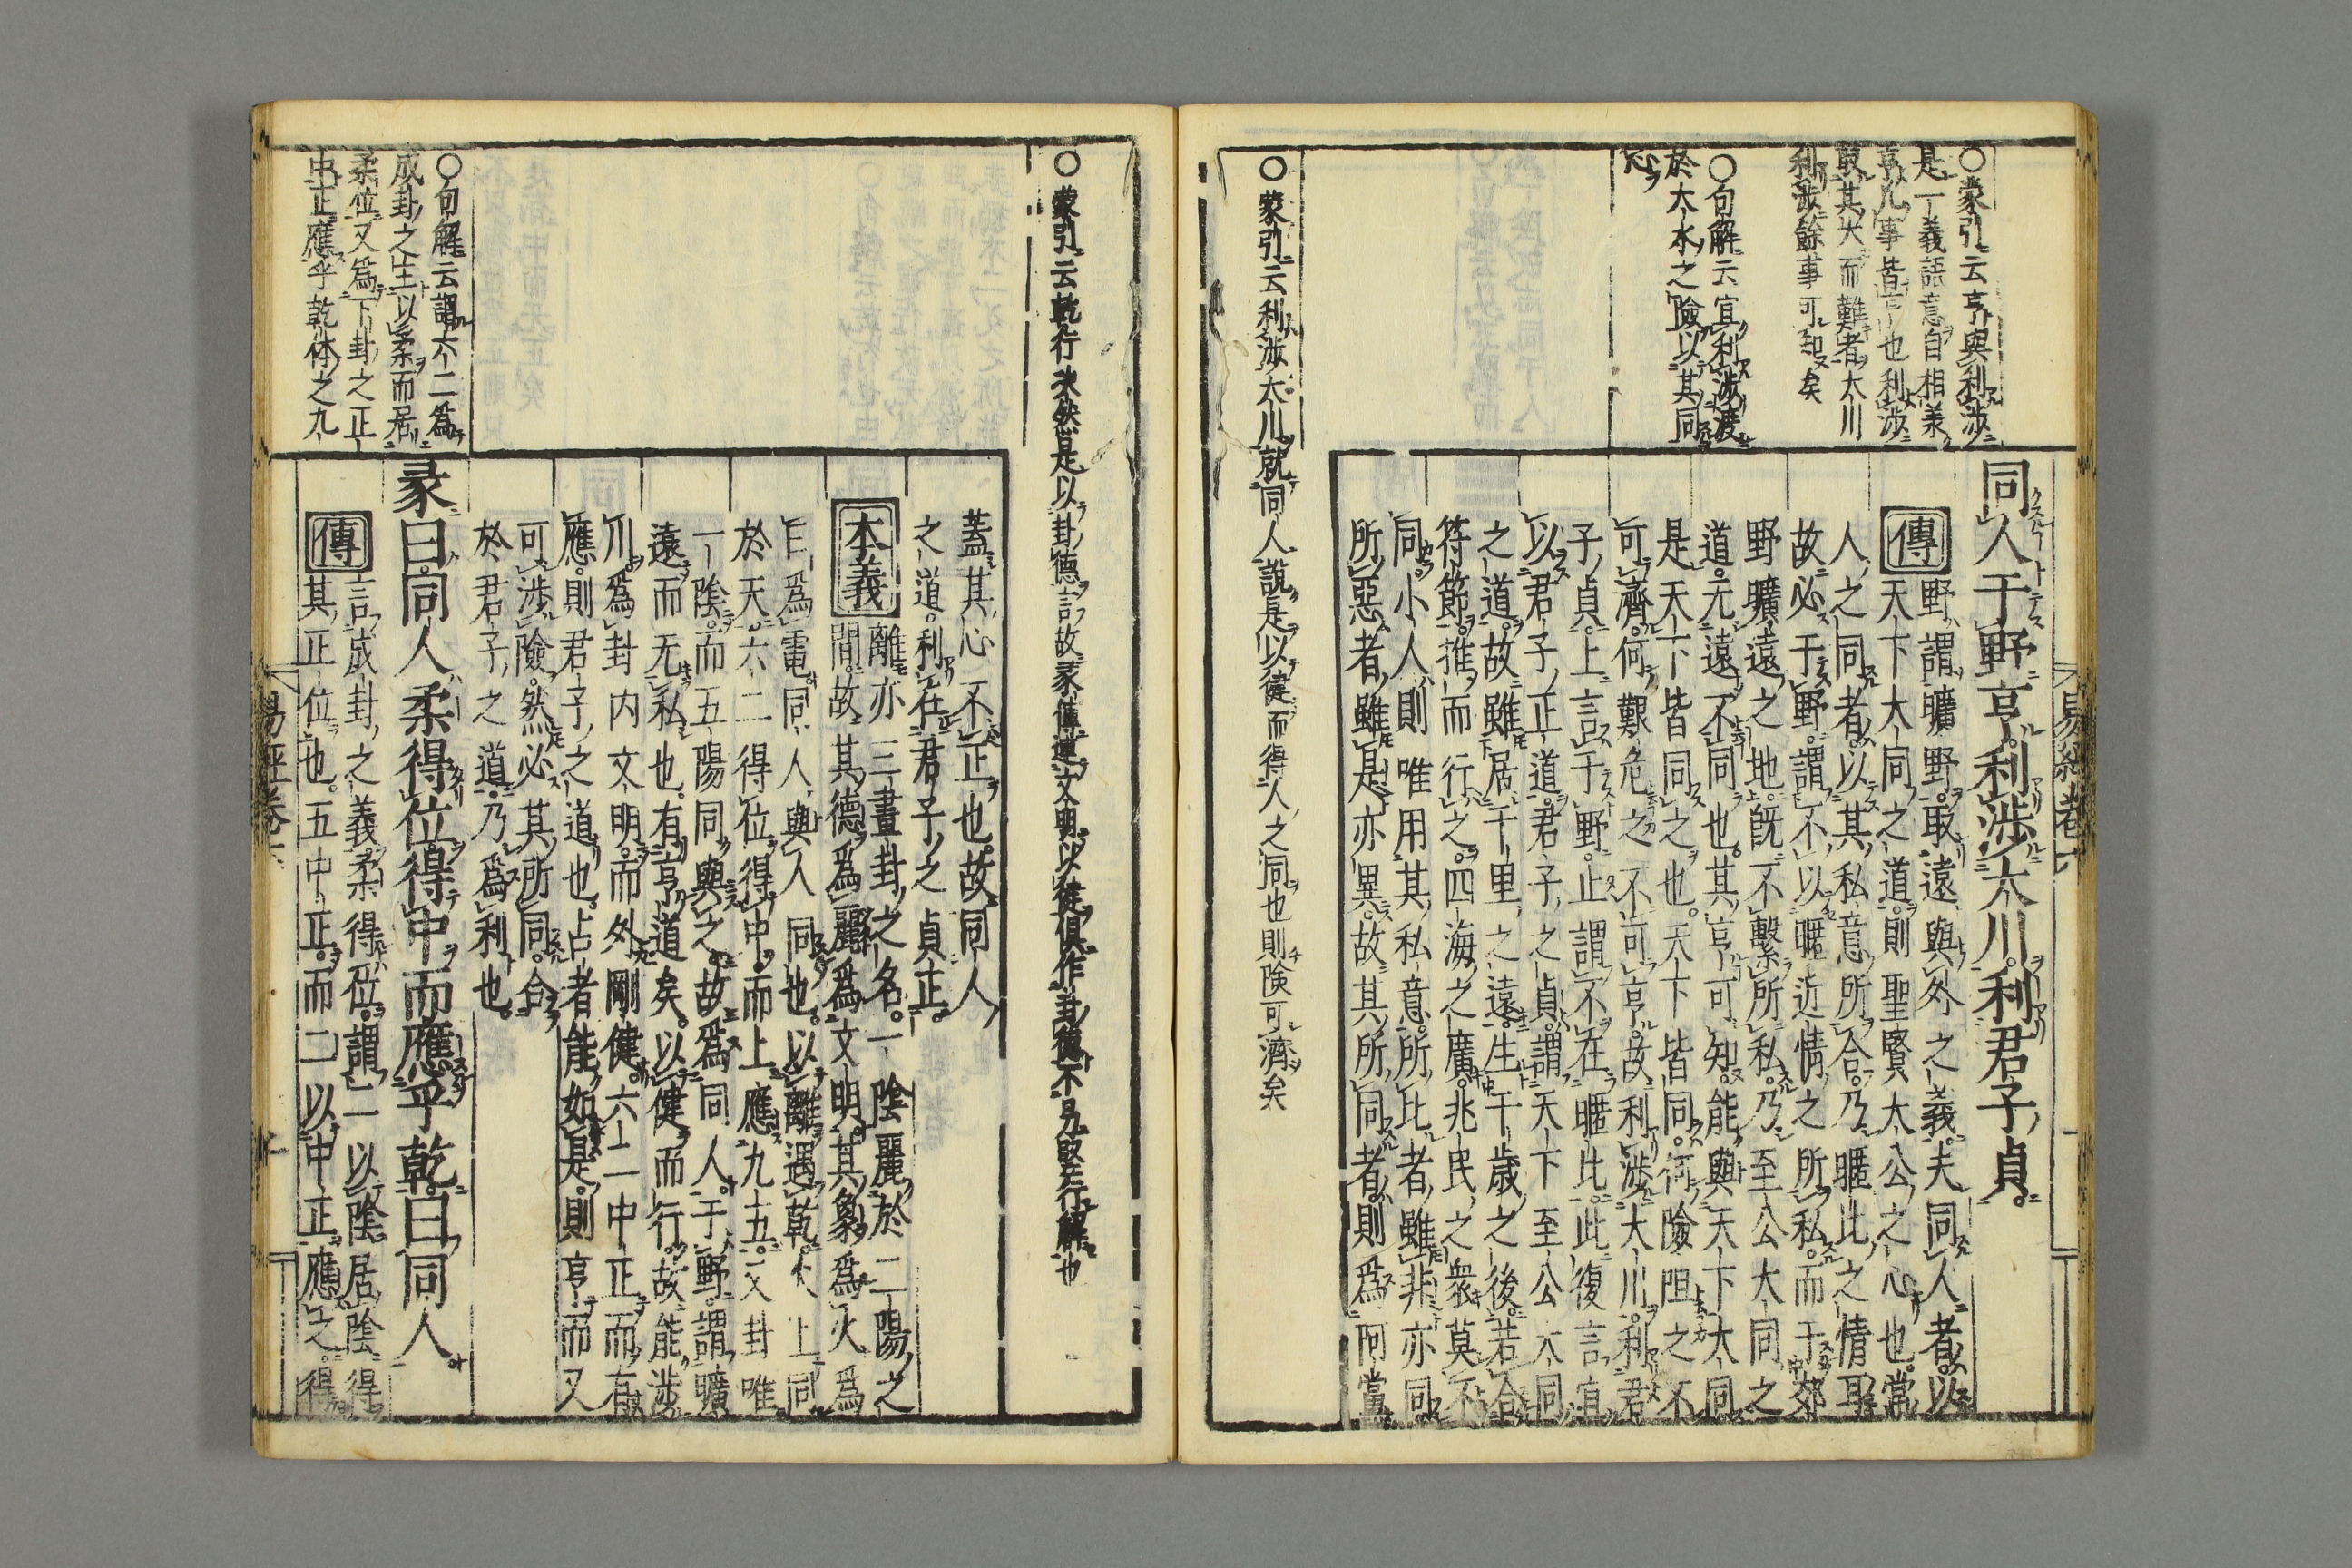 ○蒙引云亨與利涉
是一義語意自相兼
亨凡事皆亨也利涉
取其大而難者大川
利涉餘事可知矣
○句解云宜利涉渡
於大水之險以其同
同人于野亨利涉大川利君子貞
傳 野謂曠野取遠與外之義夫同人者以
天下大同之道則聖賢大公之心也常
人之同者以其私意所合乃暱比之情耳
故必于野謂不以暱近情之所私而于郊
野曠遠之地既不繫所私乃至公大同之
道无遠不同也其亨可知能與天下大同
是天下皆同之也天下皆同何險阻之不
可濟何艱危之不可亨故利涉大川利君
子貞上言于野止謂不在暱比此復言宜
以君子正道君子之貞謂天下至公大同
之道故雖居千里之遠生千歲之後若合
符節推而行之四海之廣兆民之衆莫不
同小人則唯用其私意所比者雖非亦同
所惡者雖是亦異故其所同者則爲阿黨
○蒙引云利涉大川就同人說是以健而得人之同也則險可濟矣
○蒙引云乾行亦然是以卦德言故彖傳連文明以健俱作卦德不另取乾行解也
蓋其心不正也故同人
之道利在君子之貞正
本義 離亦三畫卦之名一陰麗於二陽之
間故其德爲麗爲文明其象爲火爲
日爲電同人與人同也以離遇乾火上同
於天六二得位得中而上應九五又卦唯
一陰而五陽同與之故爲同人于野謂曠
遠而无私也有亨道矣以健而行故能涉
川爲卦内文明而外剛健六二中正而有
應則君子之道也占者能如是則亨而又
可涉險然必其所同合
於君子之道乃爲利也
○句解云謂六二爲
成卦之主以柔而居
柔位又爲下卦之正
中正應乎乾体之九
彖曰同人柔得位得中而應乎乾曰同人
傳 言成卦之義柔得位謂二以陰居陰得
其正位也五中正而二以中正應之得